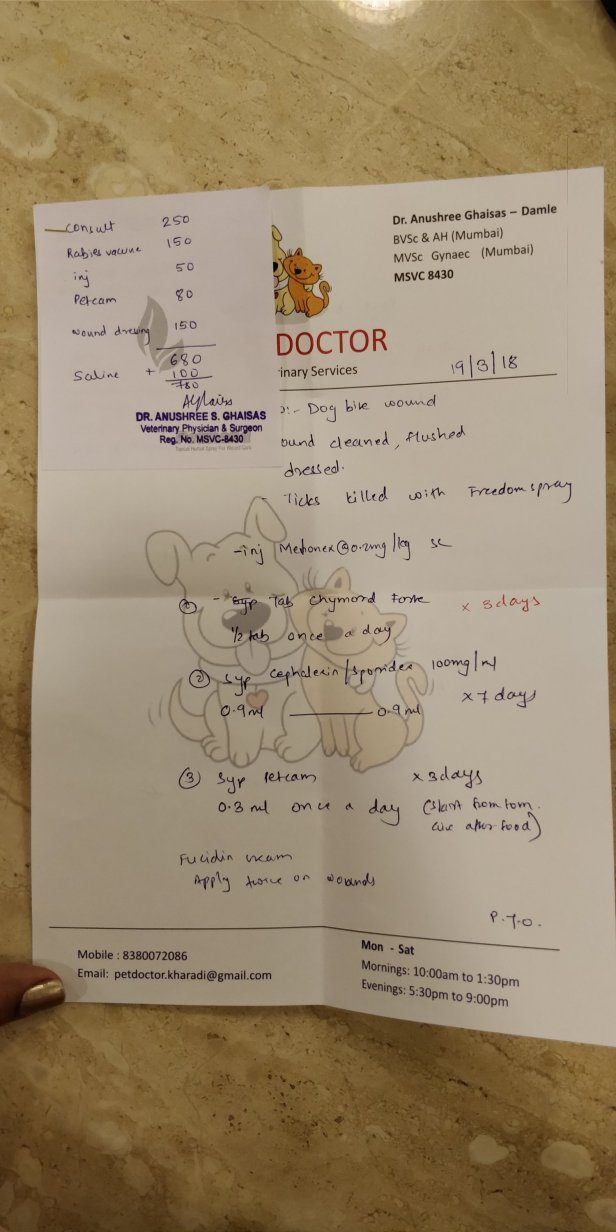 Consult 250
Rabies vaccine 150
inj 50
Petcam 80
wound dressing 150
680
Saline + 100
780
DR. ANUSHREE S. GHAISAS
Veterinary Physician & Surgeon
Reg. No. MSVC-8430
Dr. Anushree Ghaisas – Damle
BVSc & AH (Mumbai)
MVSc Gynaec (Mumbai)
MSVC 8430
DOCTOR
inary Services
19/3/18
:- Dog bite wound
ound cleaned, flushed
dressed.
- Ticks killed with Freedom spray
- inj Melonex @ 0.2mg/kg sc
① - Tab Chymoral Forte x 3 days
1/2 tab once a day
② Syp Cephalexin/Sporidex 100mg/ml
0.9ml — 0.9ml x 7 days
③ Syp Petcam x 3 days
0.3 ml once a day (Start from tom.
Give after food)
Fucidin cream
Apply twice on wounds
P.T.O.
Mobile : 8380072086
Email: petdoctor.kharadi@gmail.com
Mon - Sat
Mornings: 10:00am to 1:30pm
Evenings: 5:30pm to 9:00pm